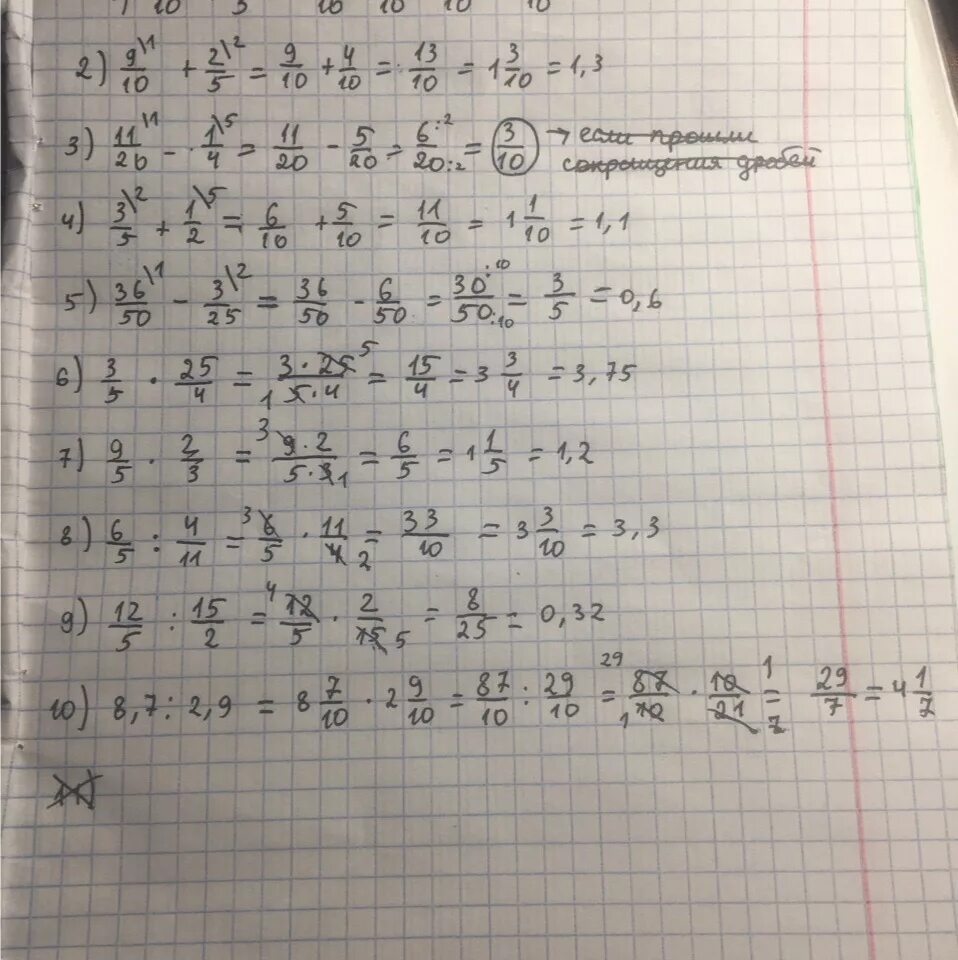 2) 9\1/10 + 2\2/5 = 9/10 + 4/10 = 13/10 = 1 3/10 = 1,3
3) 11\1/20 - 1\5/4 = 11/20 - 5/20 = 6:2/20:2 = 3/10 → если прошли
сокращения дробей
4) 3\2/5 + 1\5/2 = 6/10 + 5/10 = 11/10 = 1 1/10 = 1,1
5) 36\1/50 - 3\2/25 = 36/50 - 6/50 = 30:10/50:10 = 3/5 = 0,6
6) 3/5 · 25/4 = 3·25 5/1 5·4 = 15/4 = 3 3/4 = 3,75
7) 9/5 · 2/3 = 3 9·2/5·3 1 = 6/5 = 1 1/5 = 1,2
8) 6/5 : 4/11 = 3 6/5 · 11/4 2 = 33/10 = 3 3/10 = 3,3
9) 12/5 : 15/2 = 4 12/5 · 2/15 5 = 8/25 = 0,32
10) 8,7 : 2,9 = 8 7/10 · 2 9/10 = 87/10 : 29/10 = 29 87/1 10 · 10 1/21 7 = 29/7 = 4 1/7